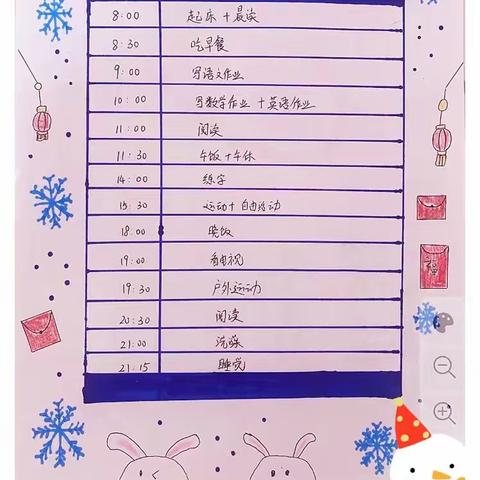 8:00 起床+晨读
8:30 吃早餐
9:00 写语文作业
10:00 写数学作业+英语作业
11:00 阅读
11:30 午饭+午休
14:00 练字
15:30 运动+自由活动
18:00 晚饭
19:00 看电视
19:30 户外运动
20:30 阅读
21:00 洗澡
21:15 睡觉
福